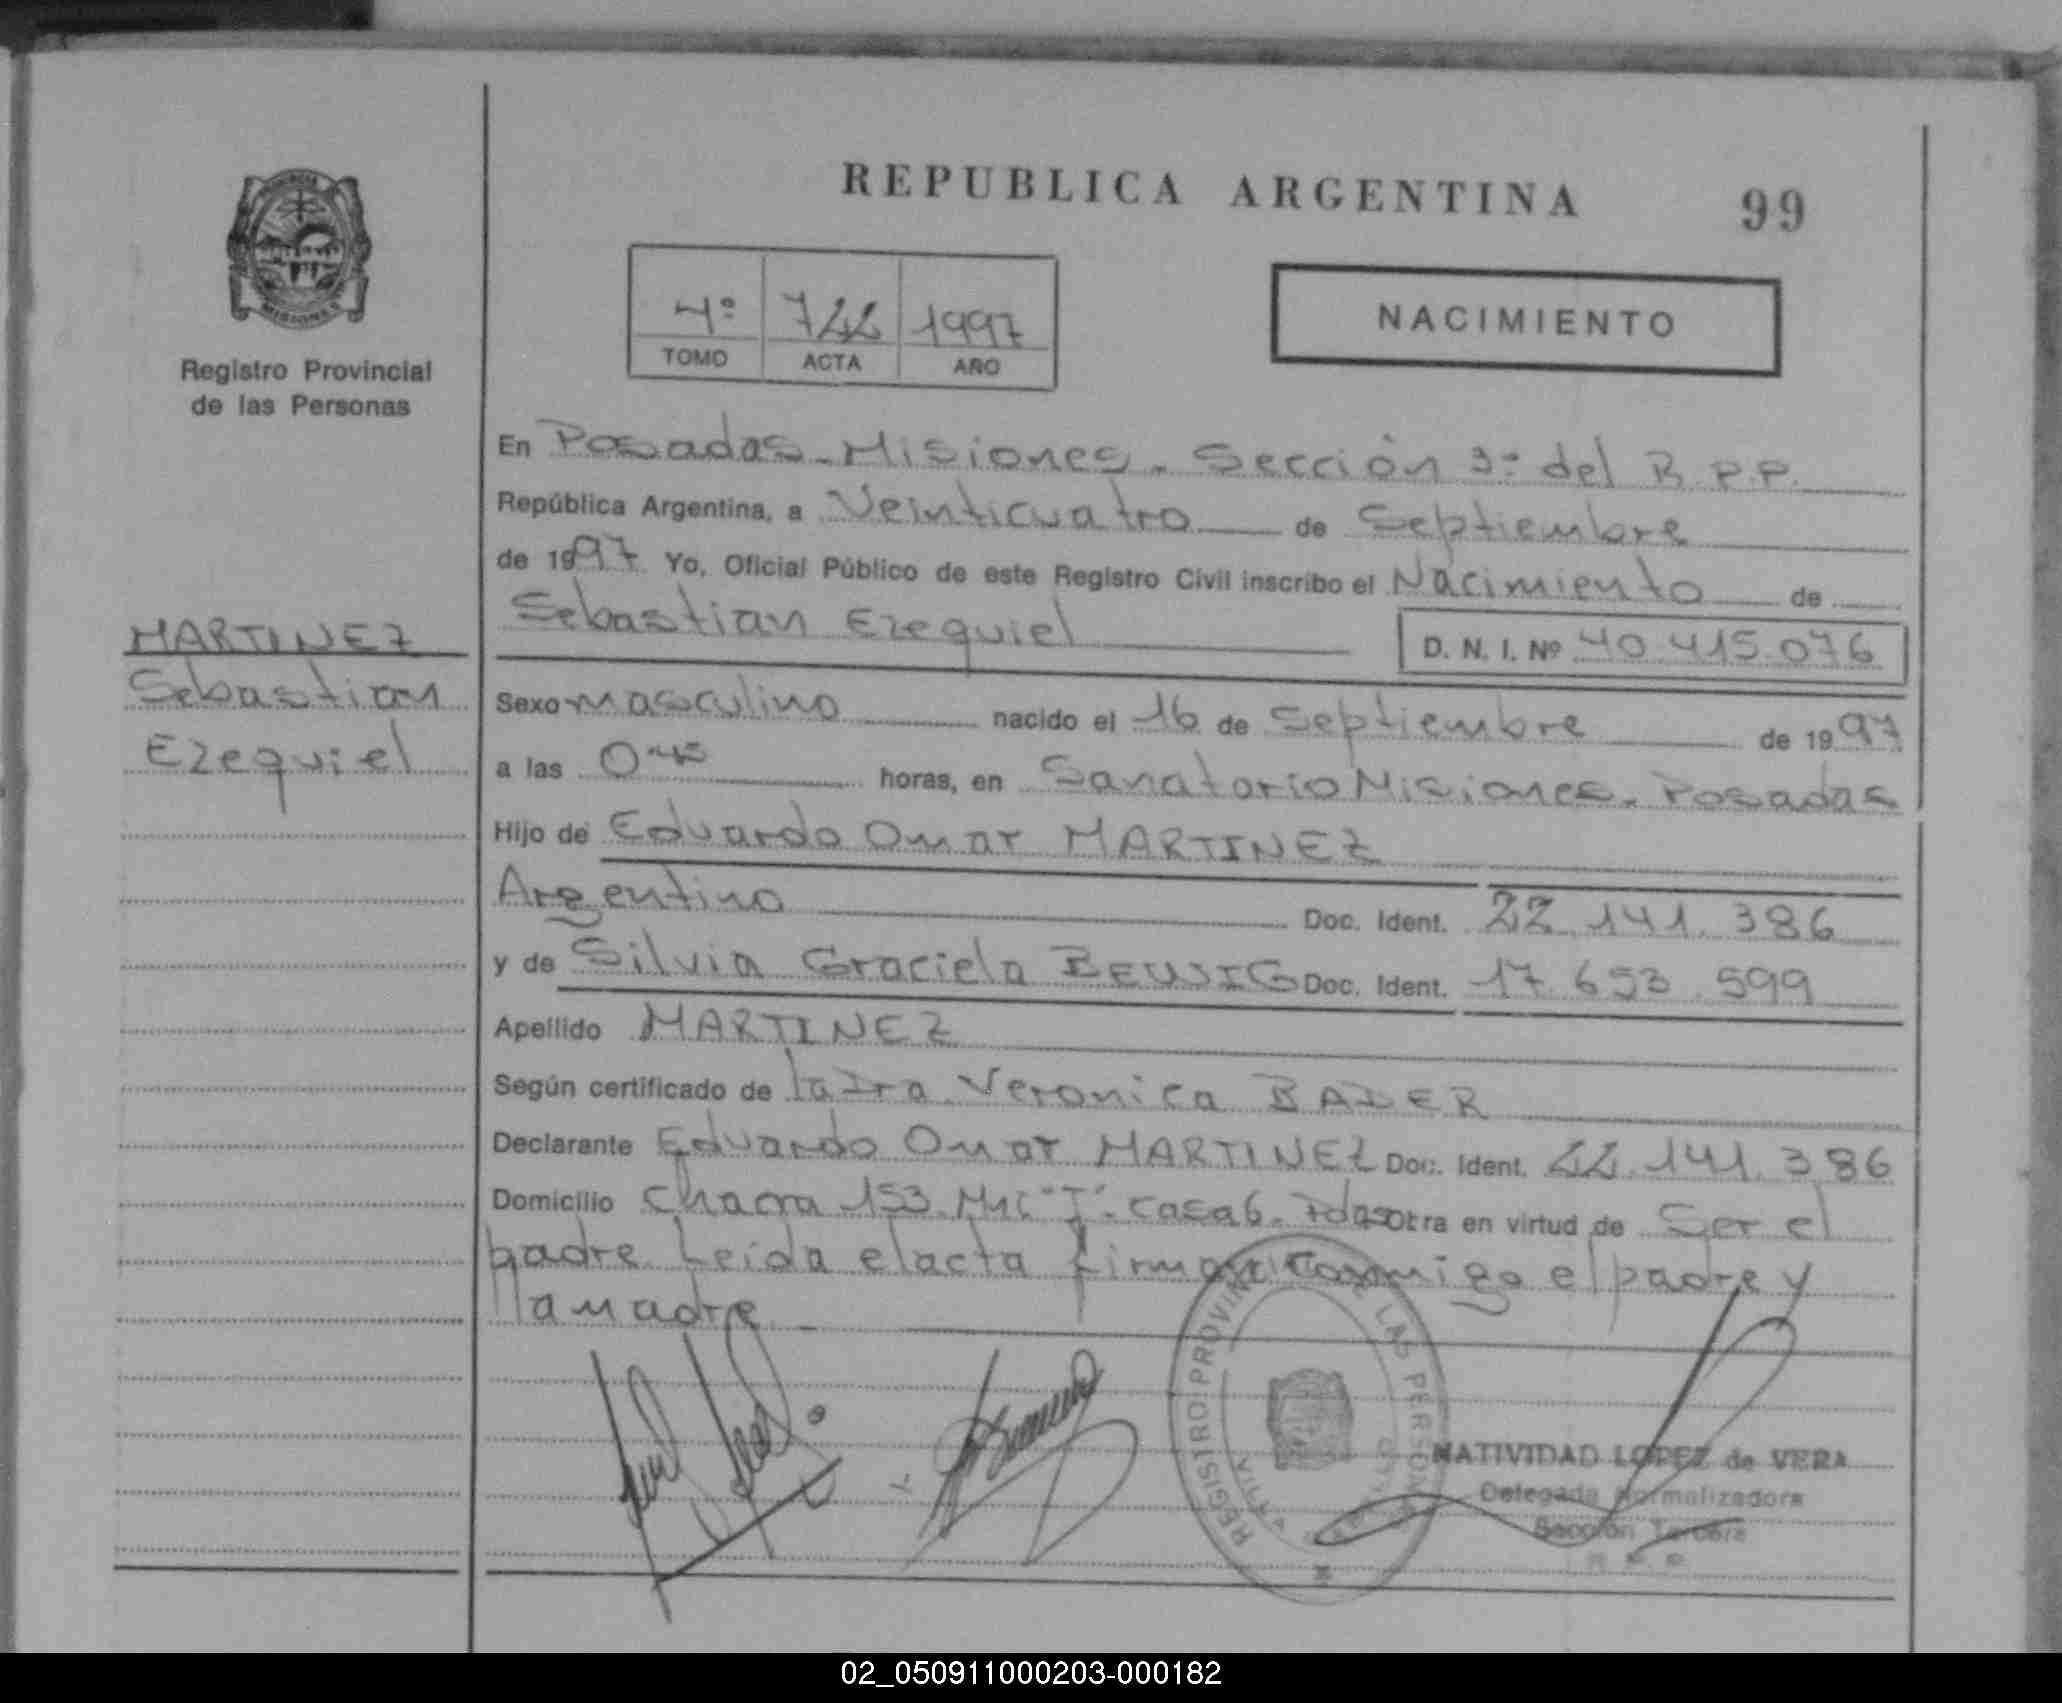 REPUBLICA ARGENTINA 99
4º 722 1997
TOMO ACTA AÑO
NACIMIENTO
Registro Provincial
de las Personas
MARTINEZ
Sebastian
Ezequiel
En Posadas-Misiones. Sección 3º del R.P.P.
República Argentina, a Veinticuatro de Septiembre
de 1997 Yo, Oficial Público de este Registro Civil inscribo el Nacimiento de
Sebastian Ezequiel
D. N. I. Nº 40.415.076
Sexo masculino nacido el 16 de Septiembre de 1997
a las 0 45 horas, en Sanatorio Misiones. Posadas
Hijo de Eduardo Omar MARTINEZ
Argentino Doc. Ident. 22.141.386
y de Silvia Graciela Doc. Ident. 17.653.599
Apellido MARTINEZ
Según certificado de la Dra. Veronica BADER
Declarante Eduardo Omar MARTINEZ Doc. Ident. 22.141.386
Domicilio Chacra 153. "I". casa 6. Pdas otra en virtud de Ser el
padre Leida el acta firman conmigo el padre y
la madre
REGISTRO PROVINCIAL DE LAS PERSONAS
NATIVIDAD LOPEZ de VERA
Delegada Normalizadora
Sección Tercera
R. P. P.
02_050911000203-000182